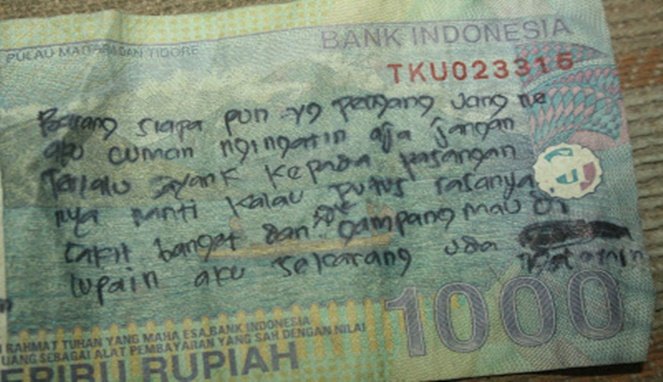 PULAU MAITARA DAN TIDORE
BANK INDONESIA
TKU023315
Barang siapa pun yg pengang uang ne
aku cuman ngingatin aja jangan
Terlalu sayank kepada pasangan
nya nanti kalau putus rasanya
sakit banget dan gampang mau di
lupain aku sekarang uda
1000
RAHMAT TUHAN YANG MAHA ESA, BANK INDONESIA
UANG SEBAGAI ALAT PEMBAYARAN YANG SAH DENGAN NILAI
SERIBU RUPIAH